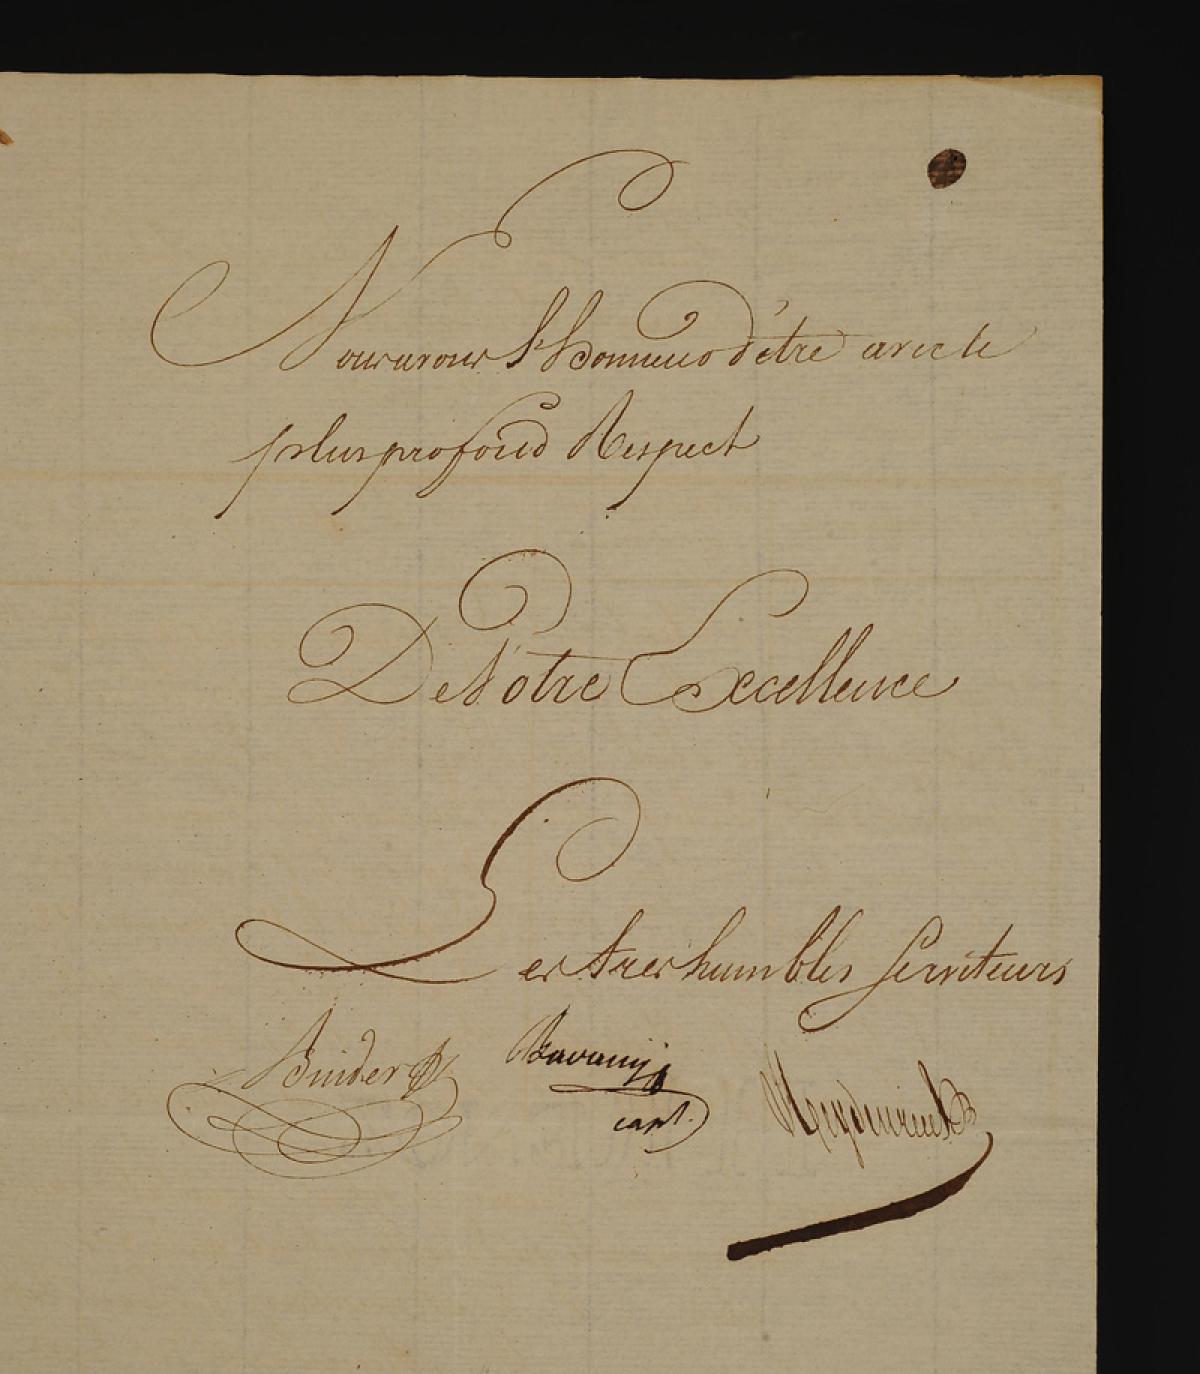 Nous avons l'honneur d'être avec le
plus profond Respect
De Votre Excellence
Les tres humbles Serviteurs
Binder
capt.